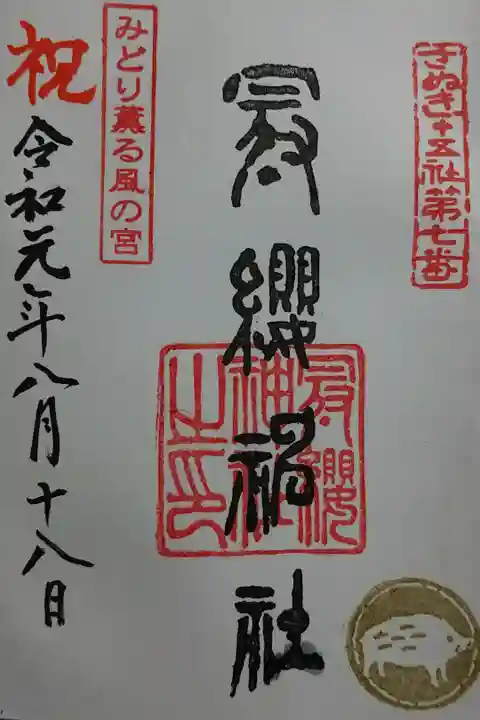 さぬき十五社第七番
冠纓神社
冠纓神社之印
みどり薫る風の宮
祝
令和元年八月十八日